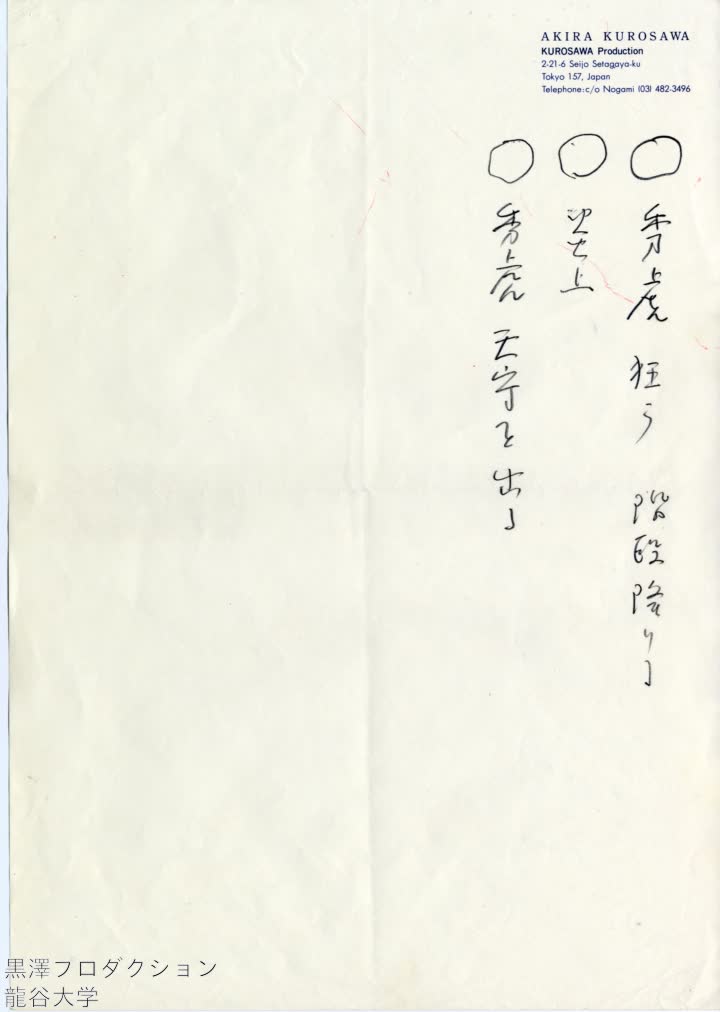 AKIRA KUROSAWA
KUROSAWA Production
2-21-6 Seijo Setagaya-ku
Tokyo 157, Japan
Telephone:c/o Nogami (03) 482-3496
○ 秀虎 狂う 階段降りる
○ 炎上
○ 秀虎 天守を出る
黒澤プロダクション
龍谷大学